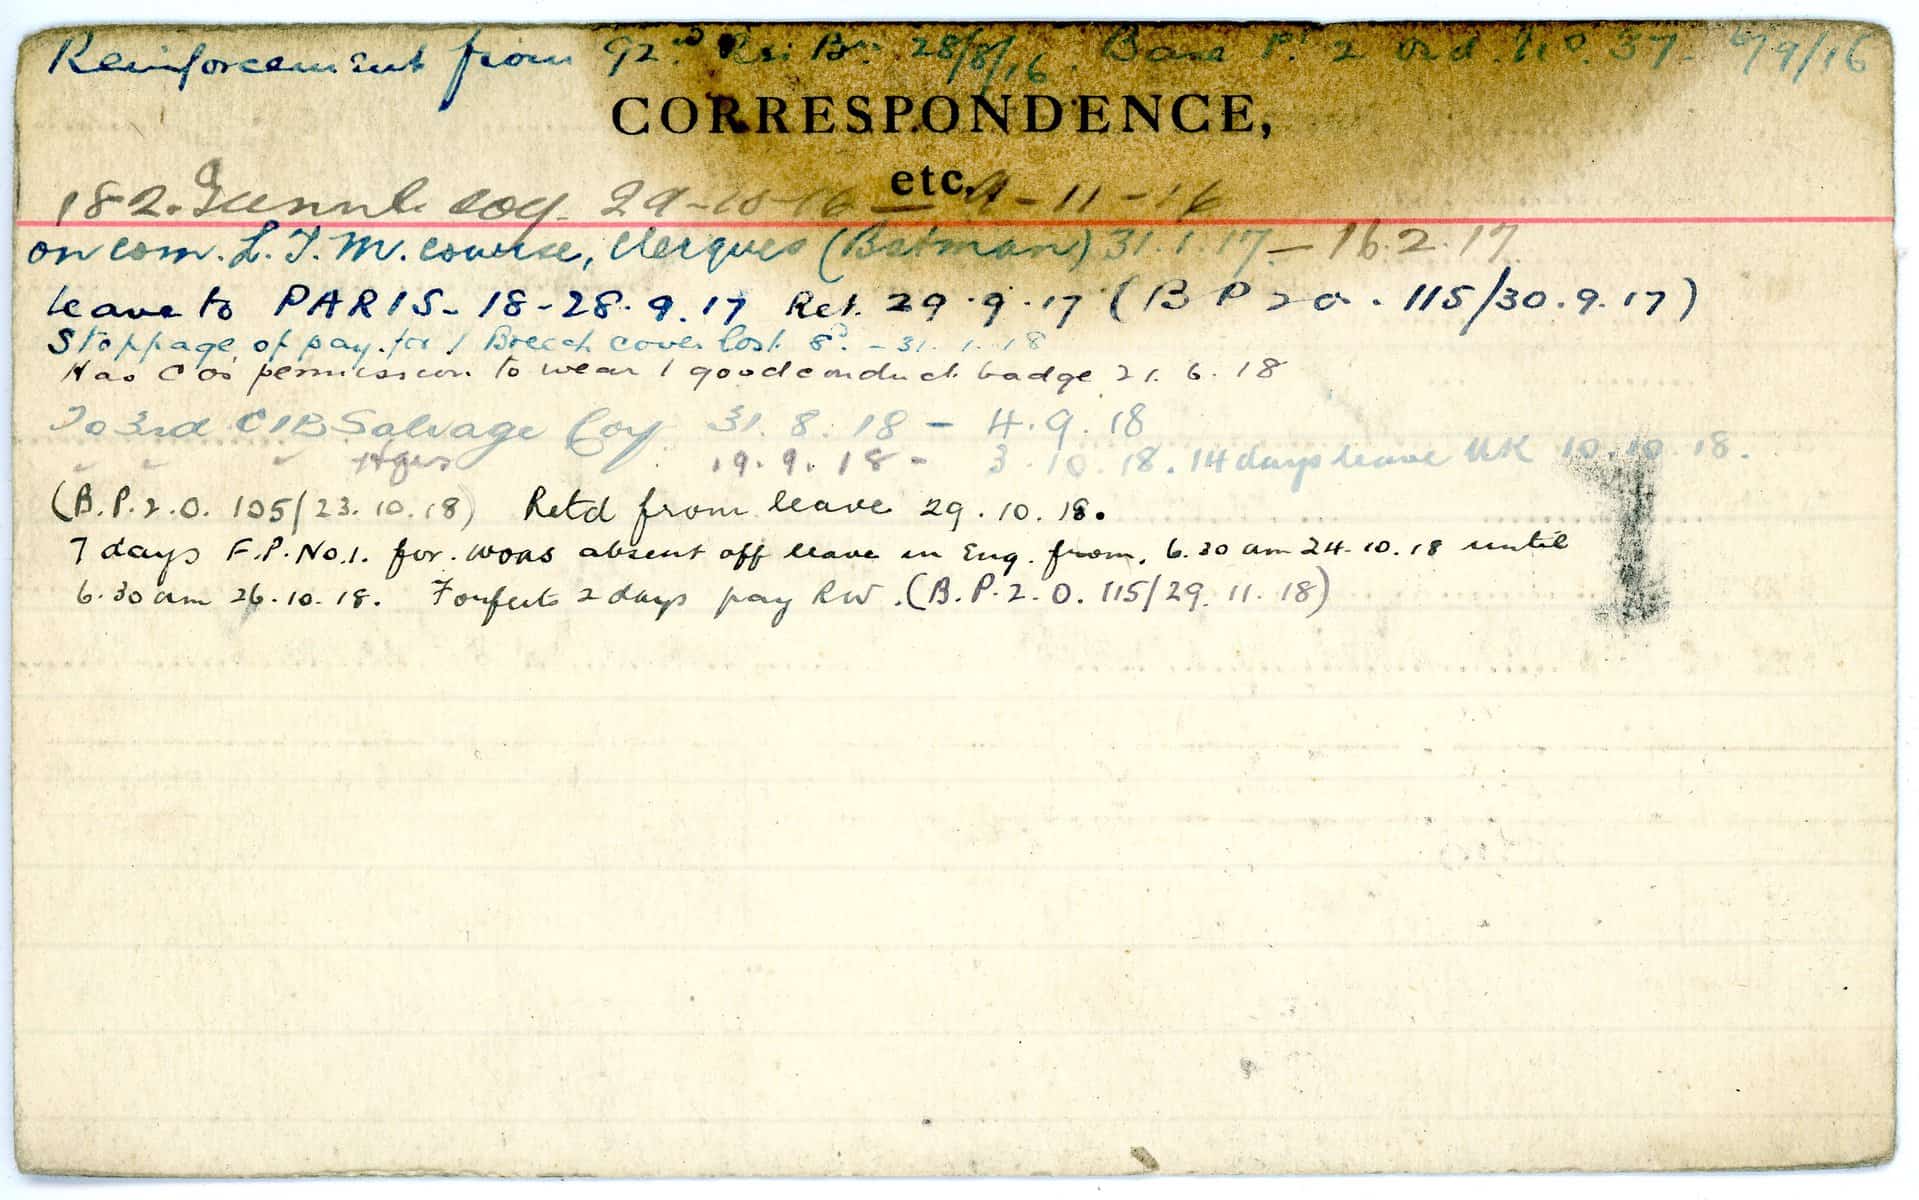 Reinforcement from 92nd Res. Bn. 28/8/16. Base Pt 2 Ord. No. 37 - 6/9/16
CORRESPONDENCE,
etc.
182. Tunnl. coy. 29-10-16 — 9-11-16
on com. L.T.M. course, Clerques (Batman) 31.1.17 — 16.2.17.
leave to PARIS - 18-28.9.17 Ret. 29.9.17 (B P 2 o. 115/30.9.17)
Stoppage of pay for 1 Breech cover lost 8d. - 31.1.18
Has C Os permission to wear 1 good conduct badge 21.6.18
To 3rd CIB Salvage Coy 31.8.18 - 4.9.18
" " " Hqrs 19.9.18 - 3.10.18. 14 days leave UK 10.10.18.
(B.P.2.O. 105/23.10.18) Retd from leave 29.10.18.
7 days F.P. No.1. for. WOAS absent off leave in Eng. from. 6.30 am 24.10.18 until
6.30 am 26.10.18. Forfeits 2 days pay RW. (B.P.2.O. 115/29.11.18)